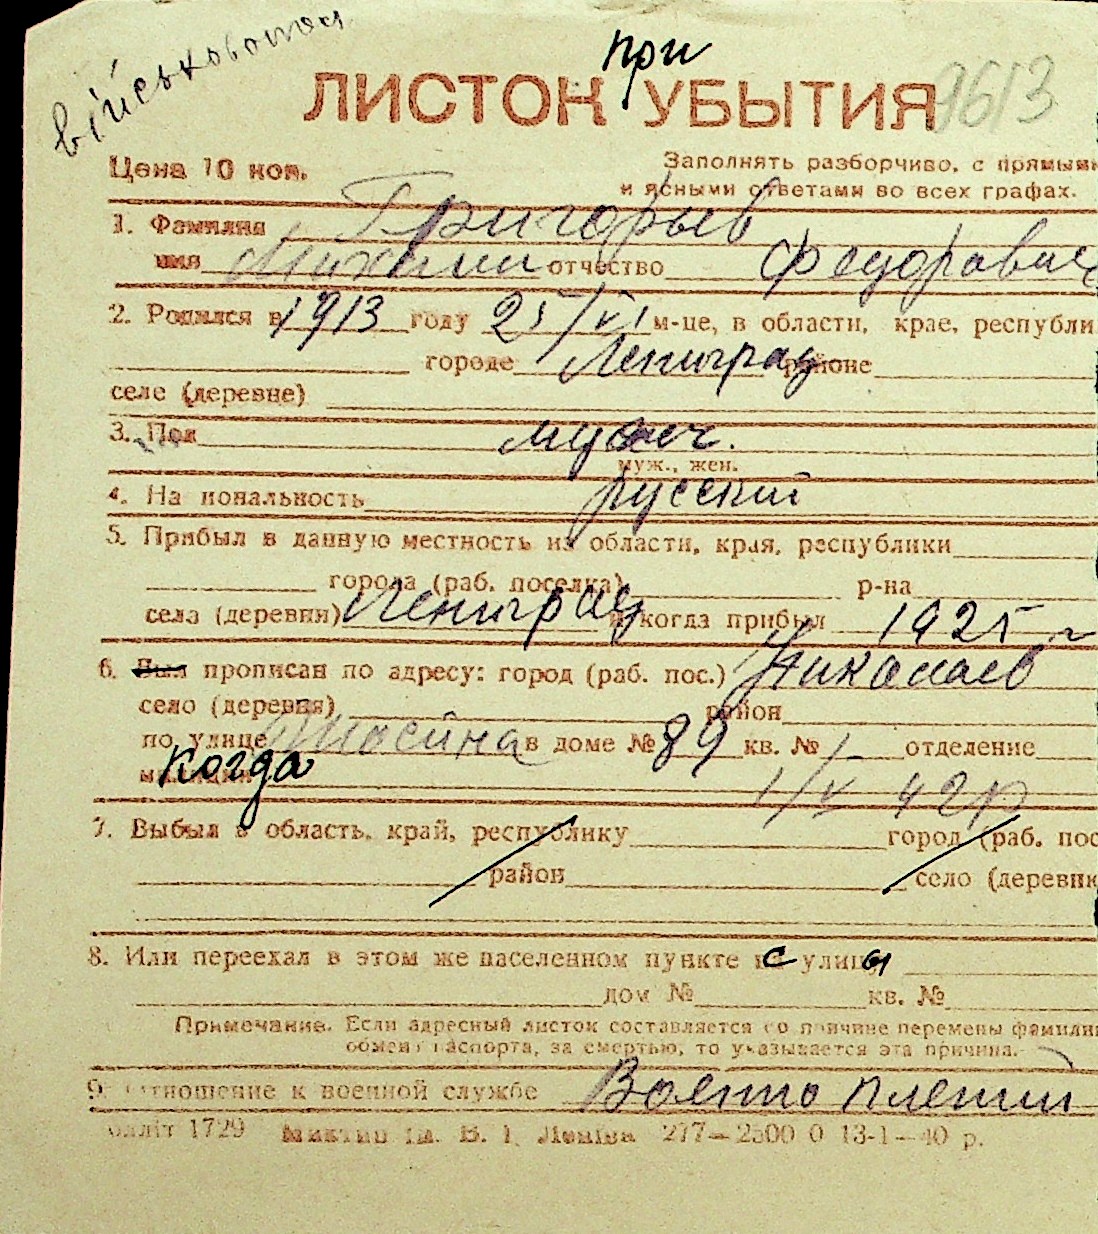 військовопол
при
ЛИСТОК УБЫТИЯ 9613
Цена 10 коп.
Заполнять разборчиво, с прямыми
и ясными ответами во всех графах.
1. Фамилия Григорьев
имя Михаил отчество Федоравич
2. Родился в 1913 году 25/VI м-це, в области, крае, республи
городе Ленинград районе
селе (деревне)
3. Пол мужч.
муж., жен.
4. Национальность русский
5. Прибыл в данную местность из области, края, республики
города (раб. поселка) р-на
села (деревни) Ленинград и когда прибыл 1925 г
6. Был прописан по адресу: город (раб. пос.) Николаев
село (деревня) район
по улице в доме № 89 кв. № 1 отделение
милиции когда 1/V 42 г
7. Выбыл в область, край, республику город (раб. пос
район село (деревню
8. Или переехал в этом же населенном пункте с улицы
дом № кв. №
Примечание. Если адресный листок составляется по причине перемены фамилии
обмена паспорта, за смертью, то указывается эта причина.
9. Отношение к военной службе Воено плений
1729 ім. В. І. Леніна 277—2500 0 13-1—40 р.